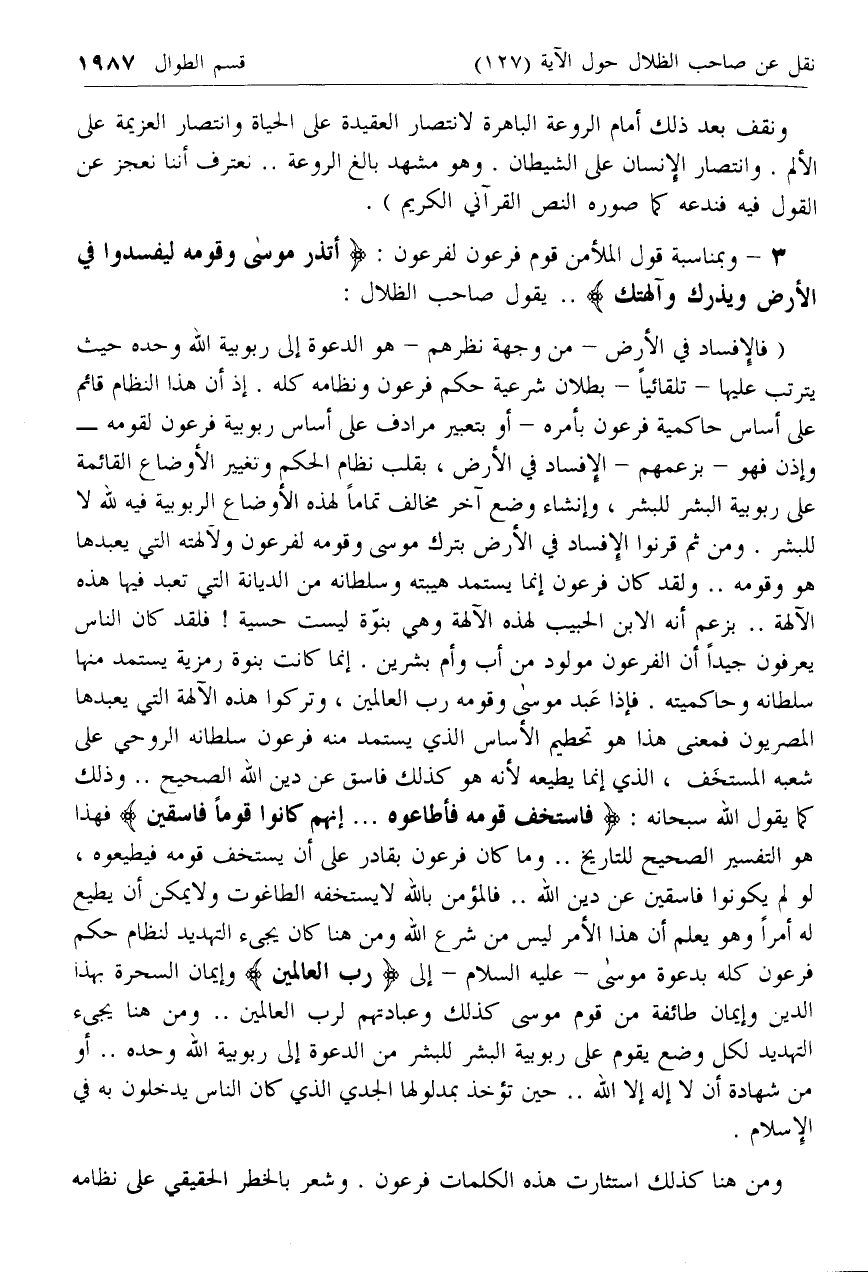 نقل عن صاحب الظلال حول الآية (١٢٧) قسم الطوال ١٩٨٧
ونقف بعد ذلك أمام الروعة الباهرة لانتصار العقيدة على الحياة وانتصار العزيمة على
الألم . وانتصار الإنسان على الشيطان . وهو مشهد بالغ الروعة .. نعترف أننا نعجز عن
القول فيه فندعه كما صوره النص القرآني الكريم ) .
٣ – وبمناسبة قول الملأمن قوم فرعون لفرعون : ﴿ أتذر موسىٰ وقومه ليفسدوا في
الأرض ويذرك وآلهتك ﴾ .. يقول صاحب الظلال :
( فالإفساد في الأرض – من وجهة نظرهم – هو الدعوة إلى ربوبية الله وحده حيث
يترتب عليها – تلقائياً – بطلان شرعية حكم فرعون ونظامه كله . إذ أن هذا النظام قائم
على أساس حاكمية فرعون بأمره – أو بتعبير مرادف على أساس ربوبية فرعون لقومه —
وإذن فهو – بزعمهم – الإفساد في الأرض ، بقلب نظام الحكم وتغيير الأوضاع القائمة
على ربوبية البشر للبشر ، وإنشاء وضع آخر مخالف تماماً لهذه الأوضاع الربوبية فيه لله لا
للبشر . ومن ثم قرنوا الإفساد في الأرض بترك موسى وقومه لفرعون ولآلهته التي يعبدها
هو وقومه .. ولقد كان فرعون إنما يستمد هيبته وسلطانه من الديانة التي تعبد فيها هذه
الآلهة .. بزعم أنه الابن الحبيب لهذه الآلهة وهي بنوّة ليست حسية ! فلقد كان الناس
يعرفون جيداً أن الفرعون مولود من أب وأم بشرين . إنما كانت بنوة رمزية يستمد منها
سلطانه وحاكميته . فإذا عَبد موسىٰ وقومه رب العالمين ، وتركوا هذه الآلهة التي يعبدها
المصريون فمعنى هذا هو تحطيم الأساس الذي يستمد منه فرعون سلطانه الروحي على
شعبه المستخَف ، الذي إنما يطيعه لأنه هو كذلك فاسق عن دين الله الصحيح .. وذلك
كما يقول الله سبحانه : ﴿ فاستخف قومه فأطاعوه ... إنهم كانوا قوماً فاسقين ﴾ فهذا
هو التفسير الصحيح للتاريخ .. وما كان فرعون بقادر على أن يستخف قومه فيطيعوه ،
لو لم يكونوا فاسقين عن دين الله .. فالمؤمن بالله لايستخفه الطاغوت ولايمكن أن يطيع
له أمراً وهو يعلم أن هذا الأمر ليس من شرع الله ومن هنا كان يجيء التهديد لنظام حكم
فرعون كله بدعوة موسىٰ – عليه السلام – إلى ﴿ رب العالمين ﴾ وإيمان السحرة بهذا
الدين وإيمان طائفة من قوم موسى كذلك وعبادتهم لرب العالمين .. ومن هنا يجيء
التهديد لكل وضع يقوم على ربوبية البشر للبشر من الدعوة إلى ربوبية الله وحده .. أو
من شهادة أن لا إله إلا الله .. حين تؤخذ بمدلولها الجدي الذي كان الناس يدخلون به في
الإسلام .
ومن هنا كذلك استثارت هذه الكلمات فرعون . وشعر بالخطر الحقيقي على نظامه